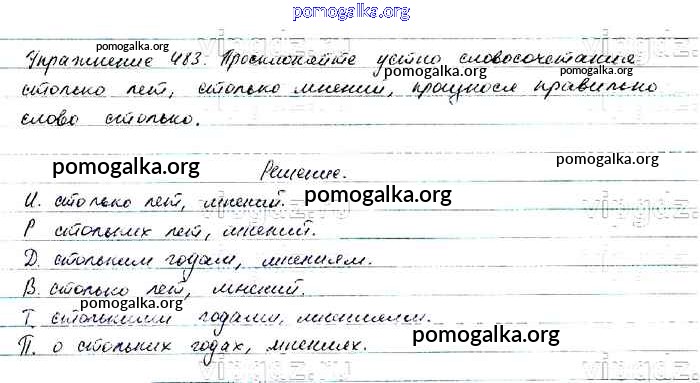 pomogalka.org
Упражнение 483. Просклоняйте устно словосочетания
pomogalka.org
pomogalka.org
pomogalka.org
столько лет, столько мнений, произнося правильно
слово столько.
pomogalka.org
pomogalka.org
Решение.
И. столько лет, мнений.
pomogalka.org
Р стольких лет, мнений.
Д. стольким годам, мнениям.
В. столько лет, мнений.
pomogalka.org
Т. столькими годами, мнениями.
pomogalka.org
П. о стольких годах, мнениях.